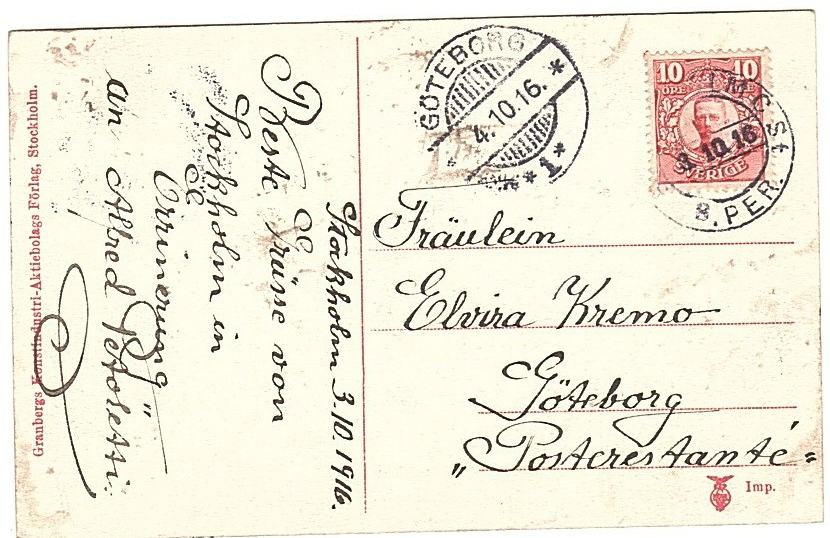 Granbergs Konstindustri-Aktiebolags Förlag, Stockholm.
Stockholm 3.10.1916.
Beste Grüsse von
Stockholm in
Errinerung
an Alfred
GÖTEBORG
4.10.16.
*1*
10 10
ÖRE
SVERIGE
3.10.16
8.PER.
Fräulein
Elvira Kremo
Göteborg
„Postcrestanté"
Imp.